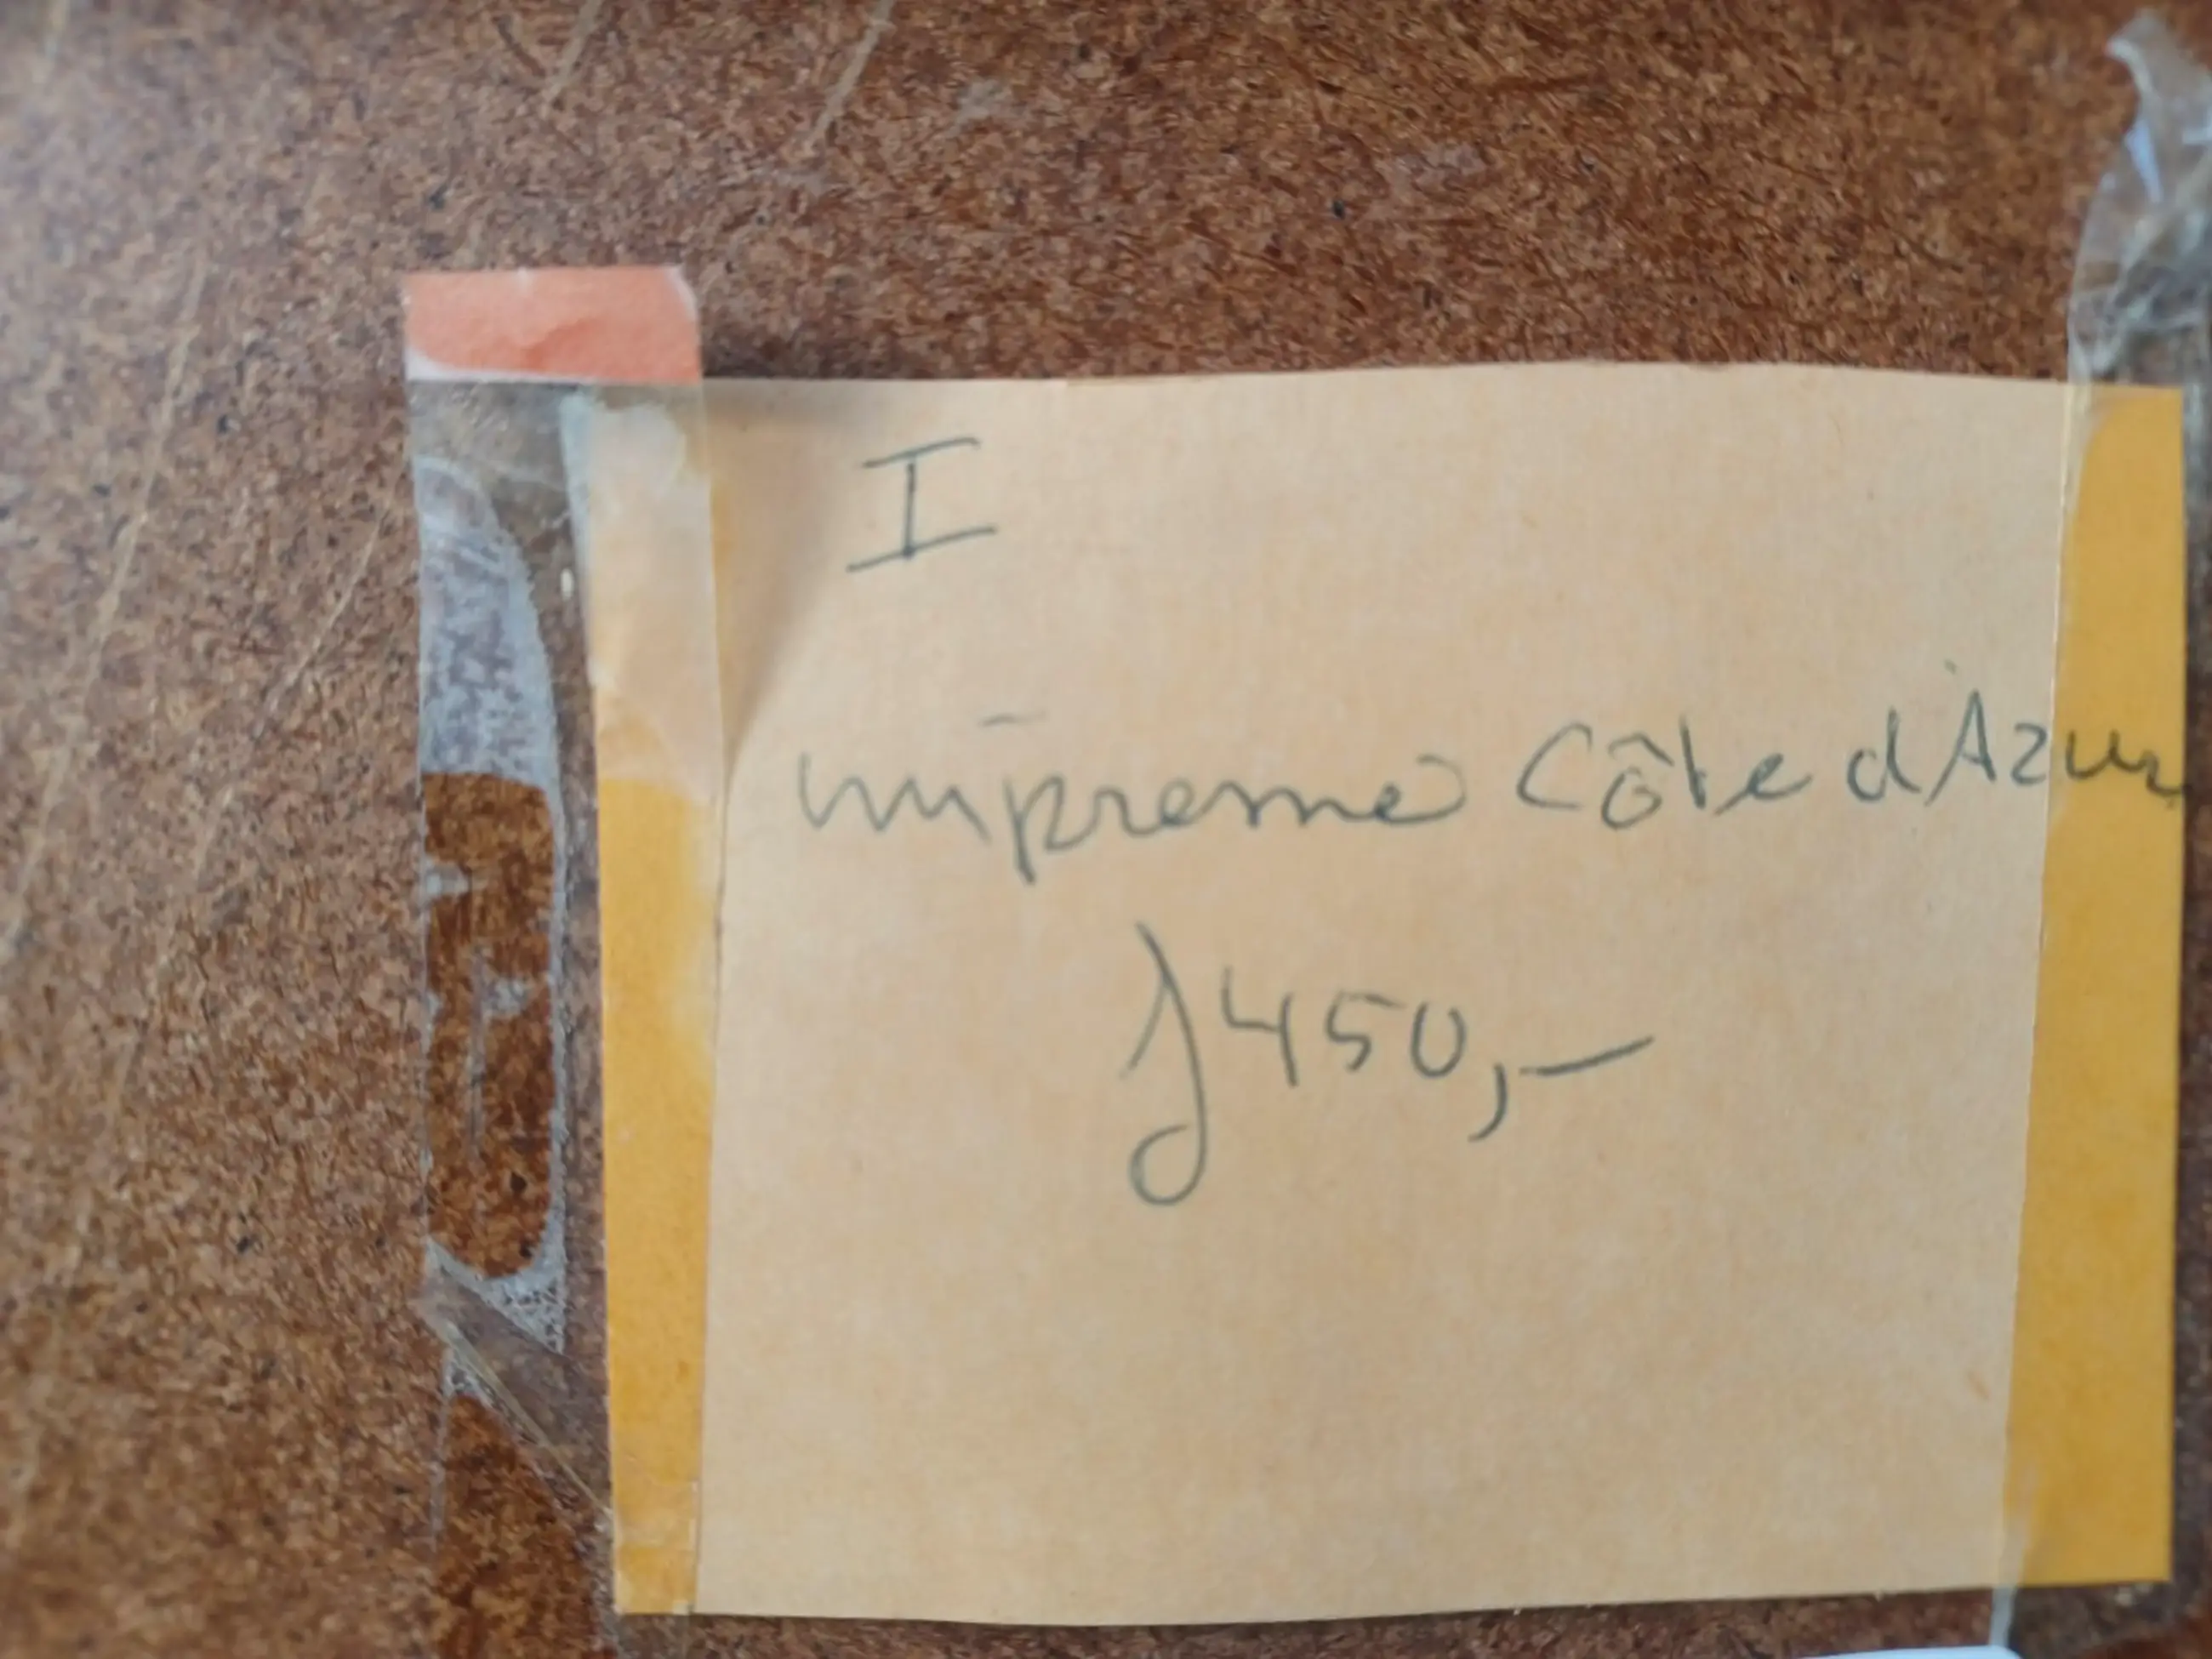 I
impreme Côte d'Azur
f 450,-